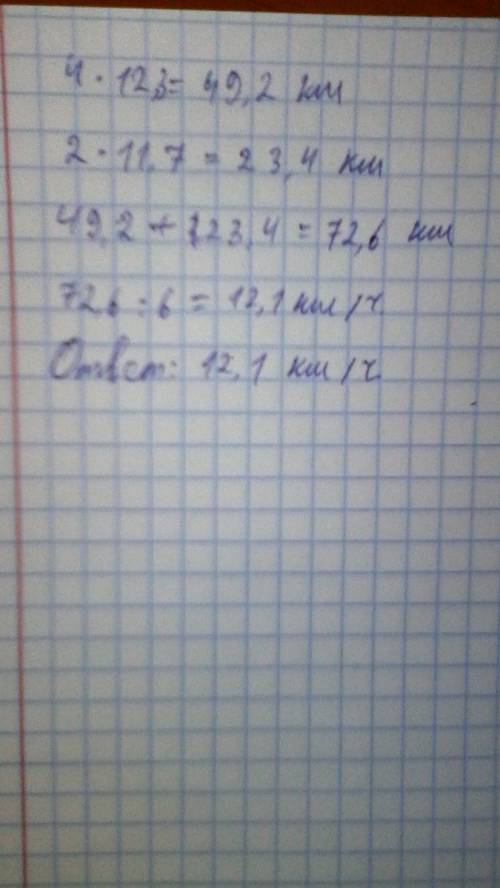 4 · 12,3 = 49,2 км
2 · 11,7 = 23,4 км
49,2 + 23,4 = 72,6 км
72,6 : 6 = 12,1 км/ч
Ответ: 12,1 км/ч.